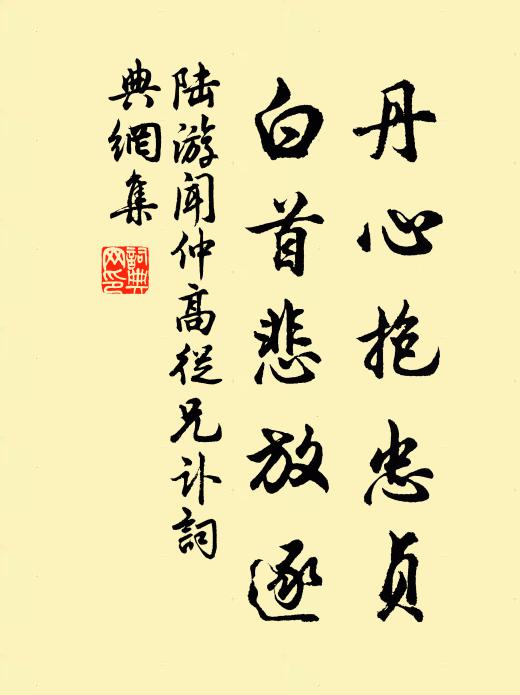 丹心抱忠貞
白首悲放逐
陆游闻仲高從兄讣詞
典網集
詞典網印